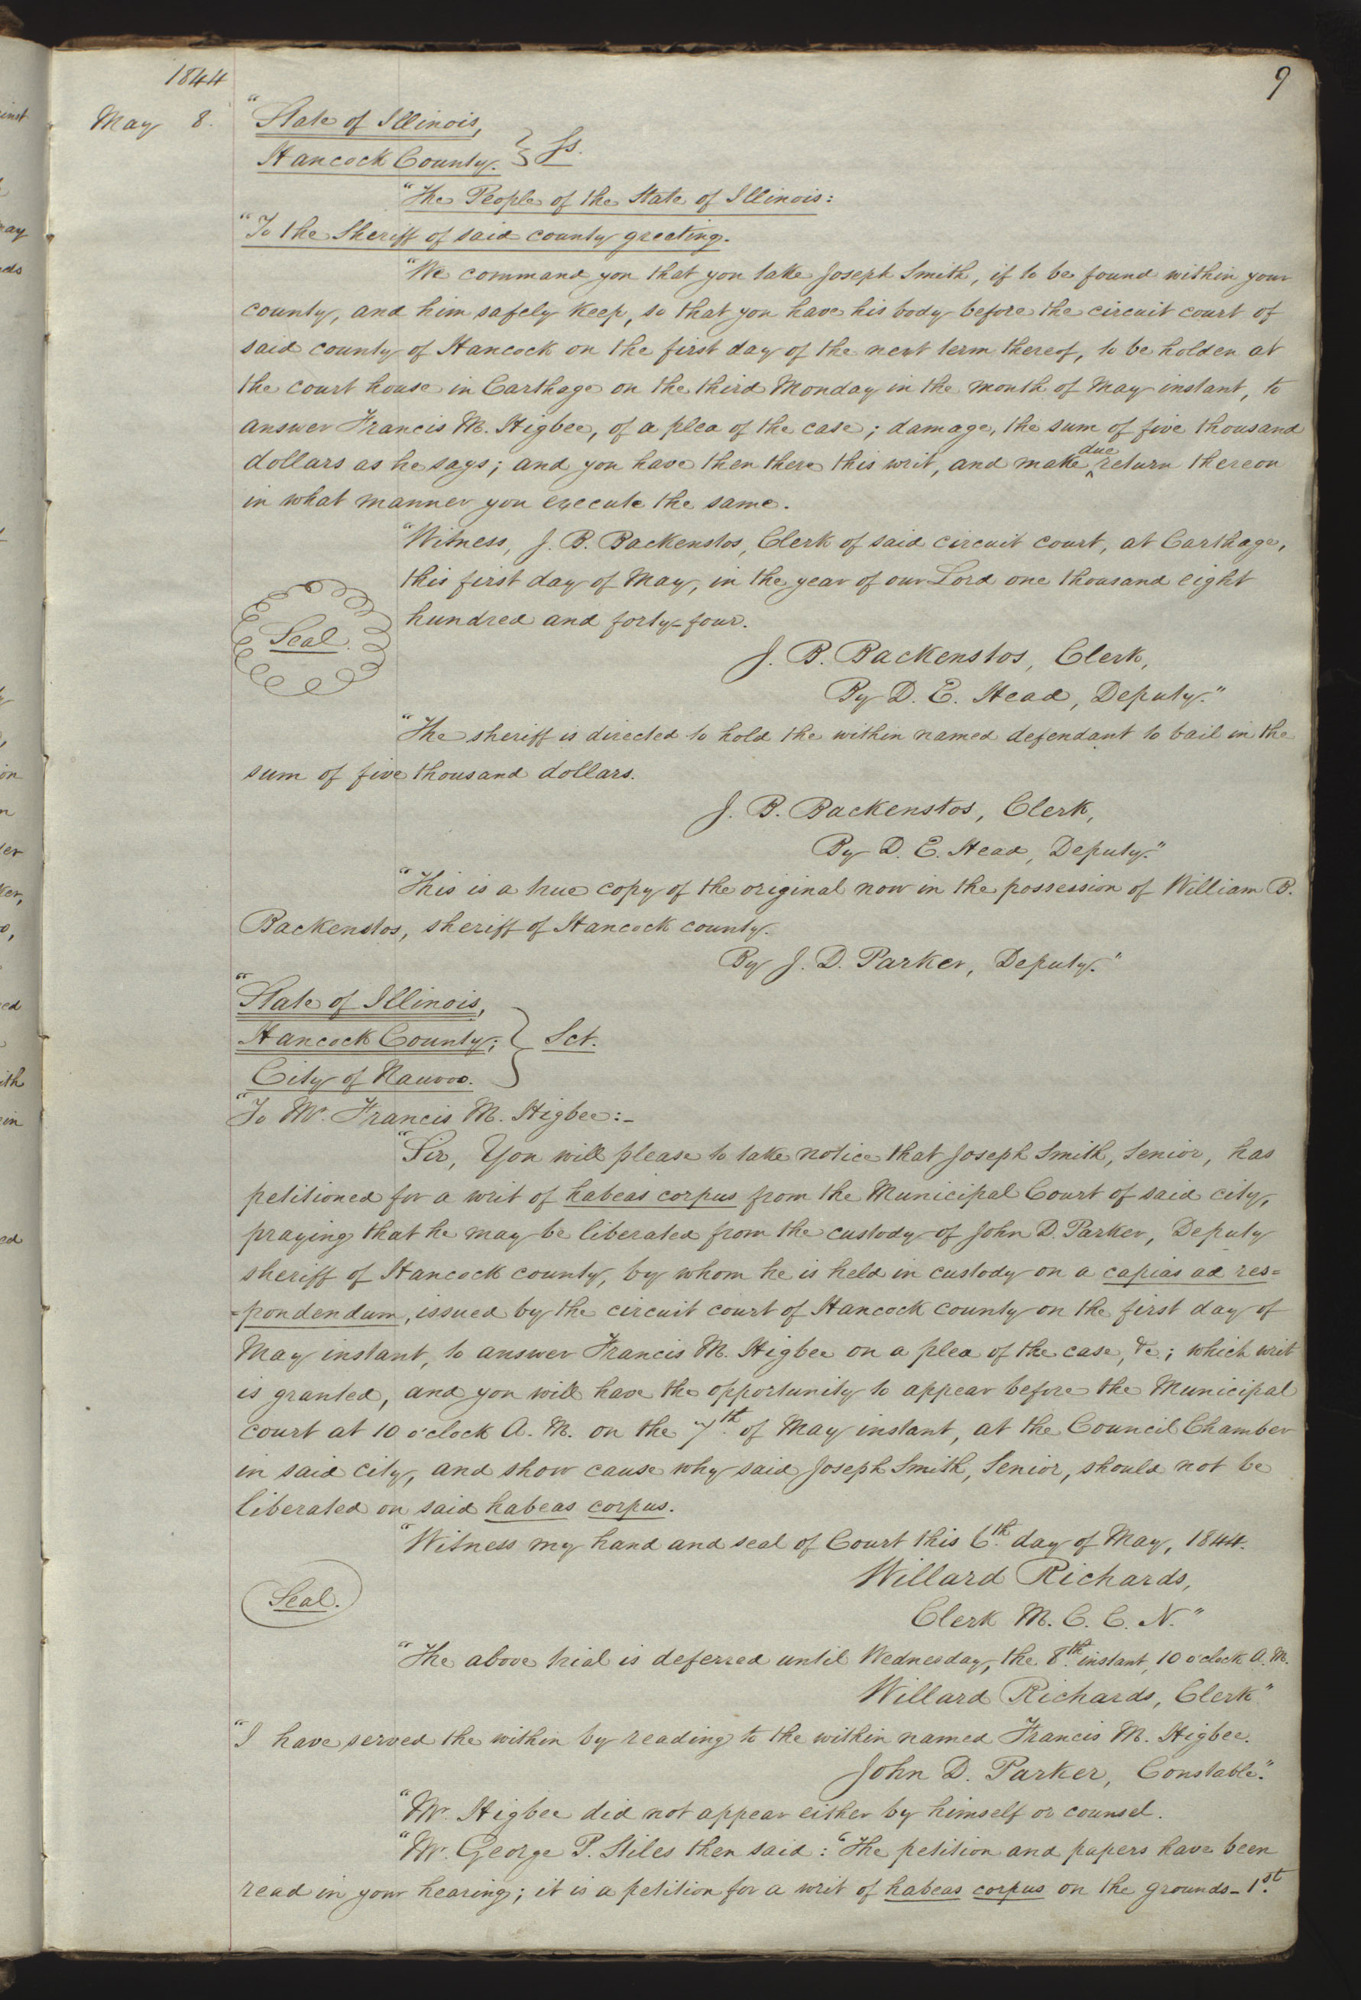 1844
9
May 8.
"State of Illinois,
Hancock County. } Ss.
"The People of the State of Illinois:
"To the Sheriff of said county greeting.
"We command you that you take Joseph Smith, if to be found within your
county, and him safely keep, so that you have his body before the circuit court of
said county of Hancock on the first day of the next term thereof, to be holden at
the court house in Carthage on the third Monday in the month of May instant, to
answer Francis M. Higbee, of a plea of the case; damage, the sum of five thousand
dollars as he says; and you have then there this writ, and make ^due return thereon
in what manner you execute the same.
"Witness, J. B. Backenstos, Clerk of said circuit court, at Carthage,
this first day of May, in the year of our Lord one thousand eight
hundred and forty-four.
Seal.
J. B. Backenstos, Clerk,
By D. E. Head, Deputy."
"The sheriff is directed to hold the within named defendant to bail in the
sum of five thousand dollars.
J. B. Backenstos, Clerk,
By D. E. Head, Deputy."
"This is a true copy of the original now in the possession of William B.
Backenstos, sheriff of Hancock county.
By J. D. Parker, Deputy."
"State of Illinois,
Hancock County; } Sct.
City of Nauvoo.
"To Mr. Francis M. Higbee:-
"Sir, You will please to take notice that Joseph Smith, Senior, has
petitioned for a writ of habeas corpus from the Municipal Court of said city,
praying that he may be liberated from the custody of John D. Parker, Deputy
sheriff of Hancock county, by whom he is held in custody on a capias ad res=
=pondendum, issued by the circuit court of Hancock county on the first day of
May instant, to answer Francis M. Higbee on a plea of the case, &c; which writ
is granted, and you will have the opportunity to appear before the Municipal
court at 10 o'clock A. M. on the 7th. of May instant, at the Council Chamber
in said city, and show cause why said Joseph Smith, Senior, should not be
liberated on said habeas corpus.
"Witness my hand and seal of Court this 6th. day of May, 1844.
Willard Richards,
Seal.
Clerk M. C. C. N."
"The above trial is deferred until Wednesday, the 8th. instant, 10 o'clock A. M.
Willard Richards, Clerk."
"I have served the within by reading to the within named Francis M. Higbee.
John D. Parker, Constable."
"Mr. Higbee did not appear either by himself or counsel.
"Mr. George P. Stiles then said: "The petition and papers have been
read in your hearing; it is a petition for a writ of habeas corpus on the grounds- 1st.